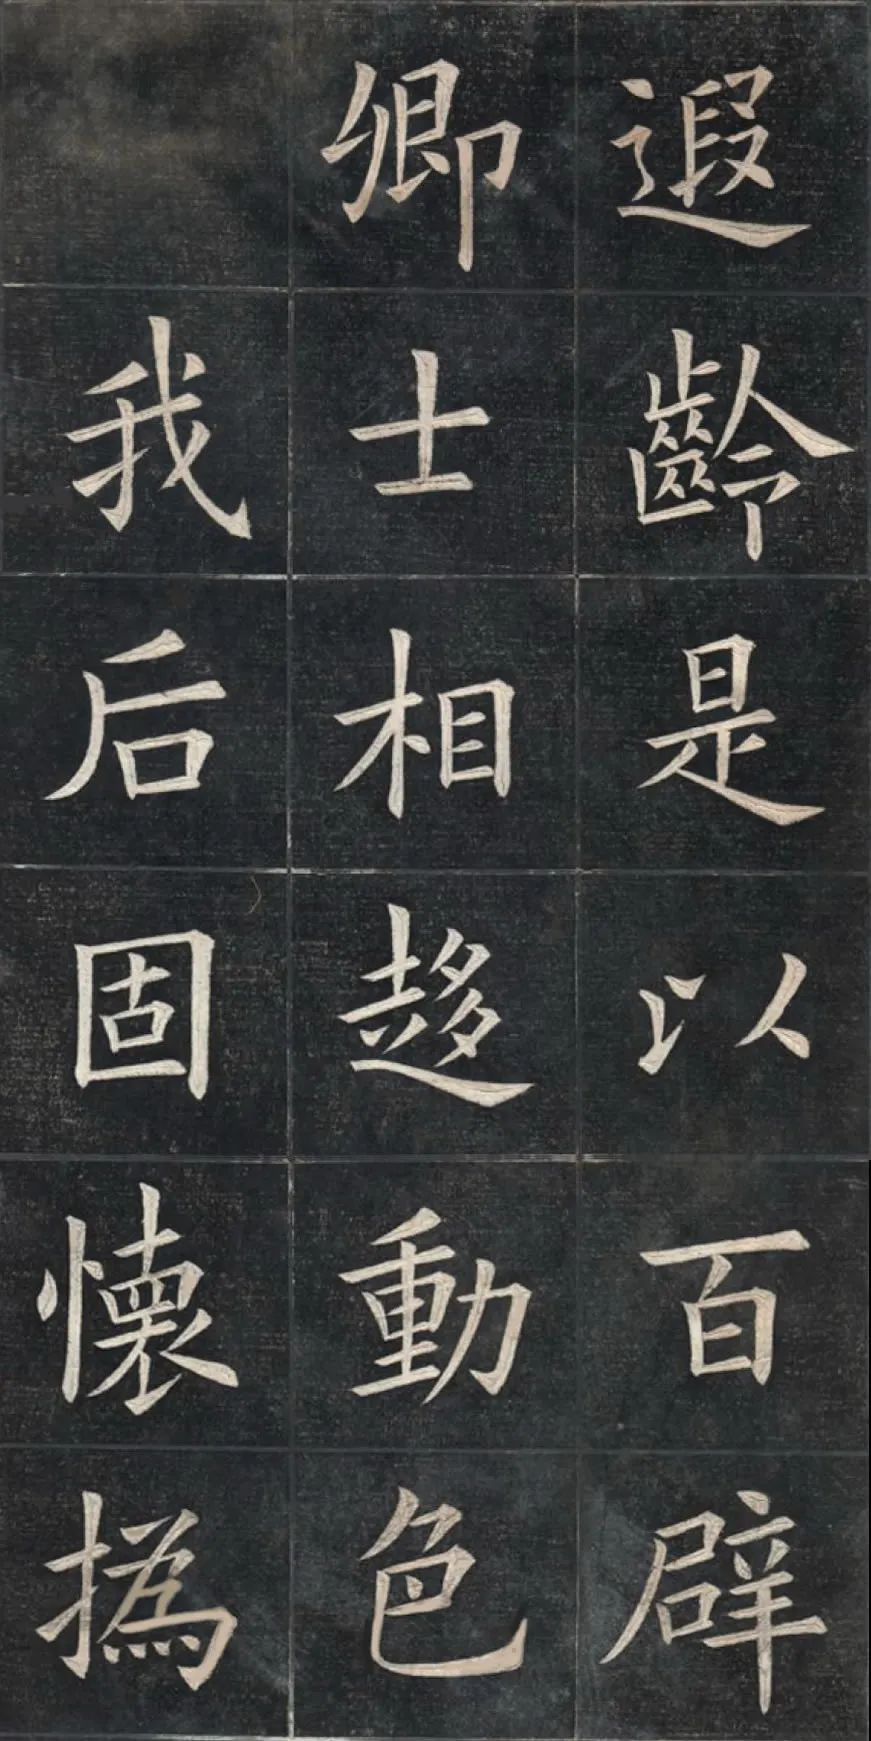 遐齡是以百辟
卿士相趍動色
我后固懷撝